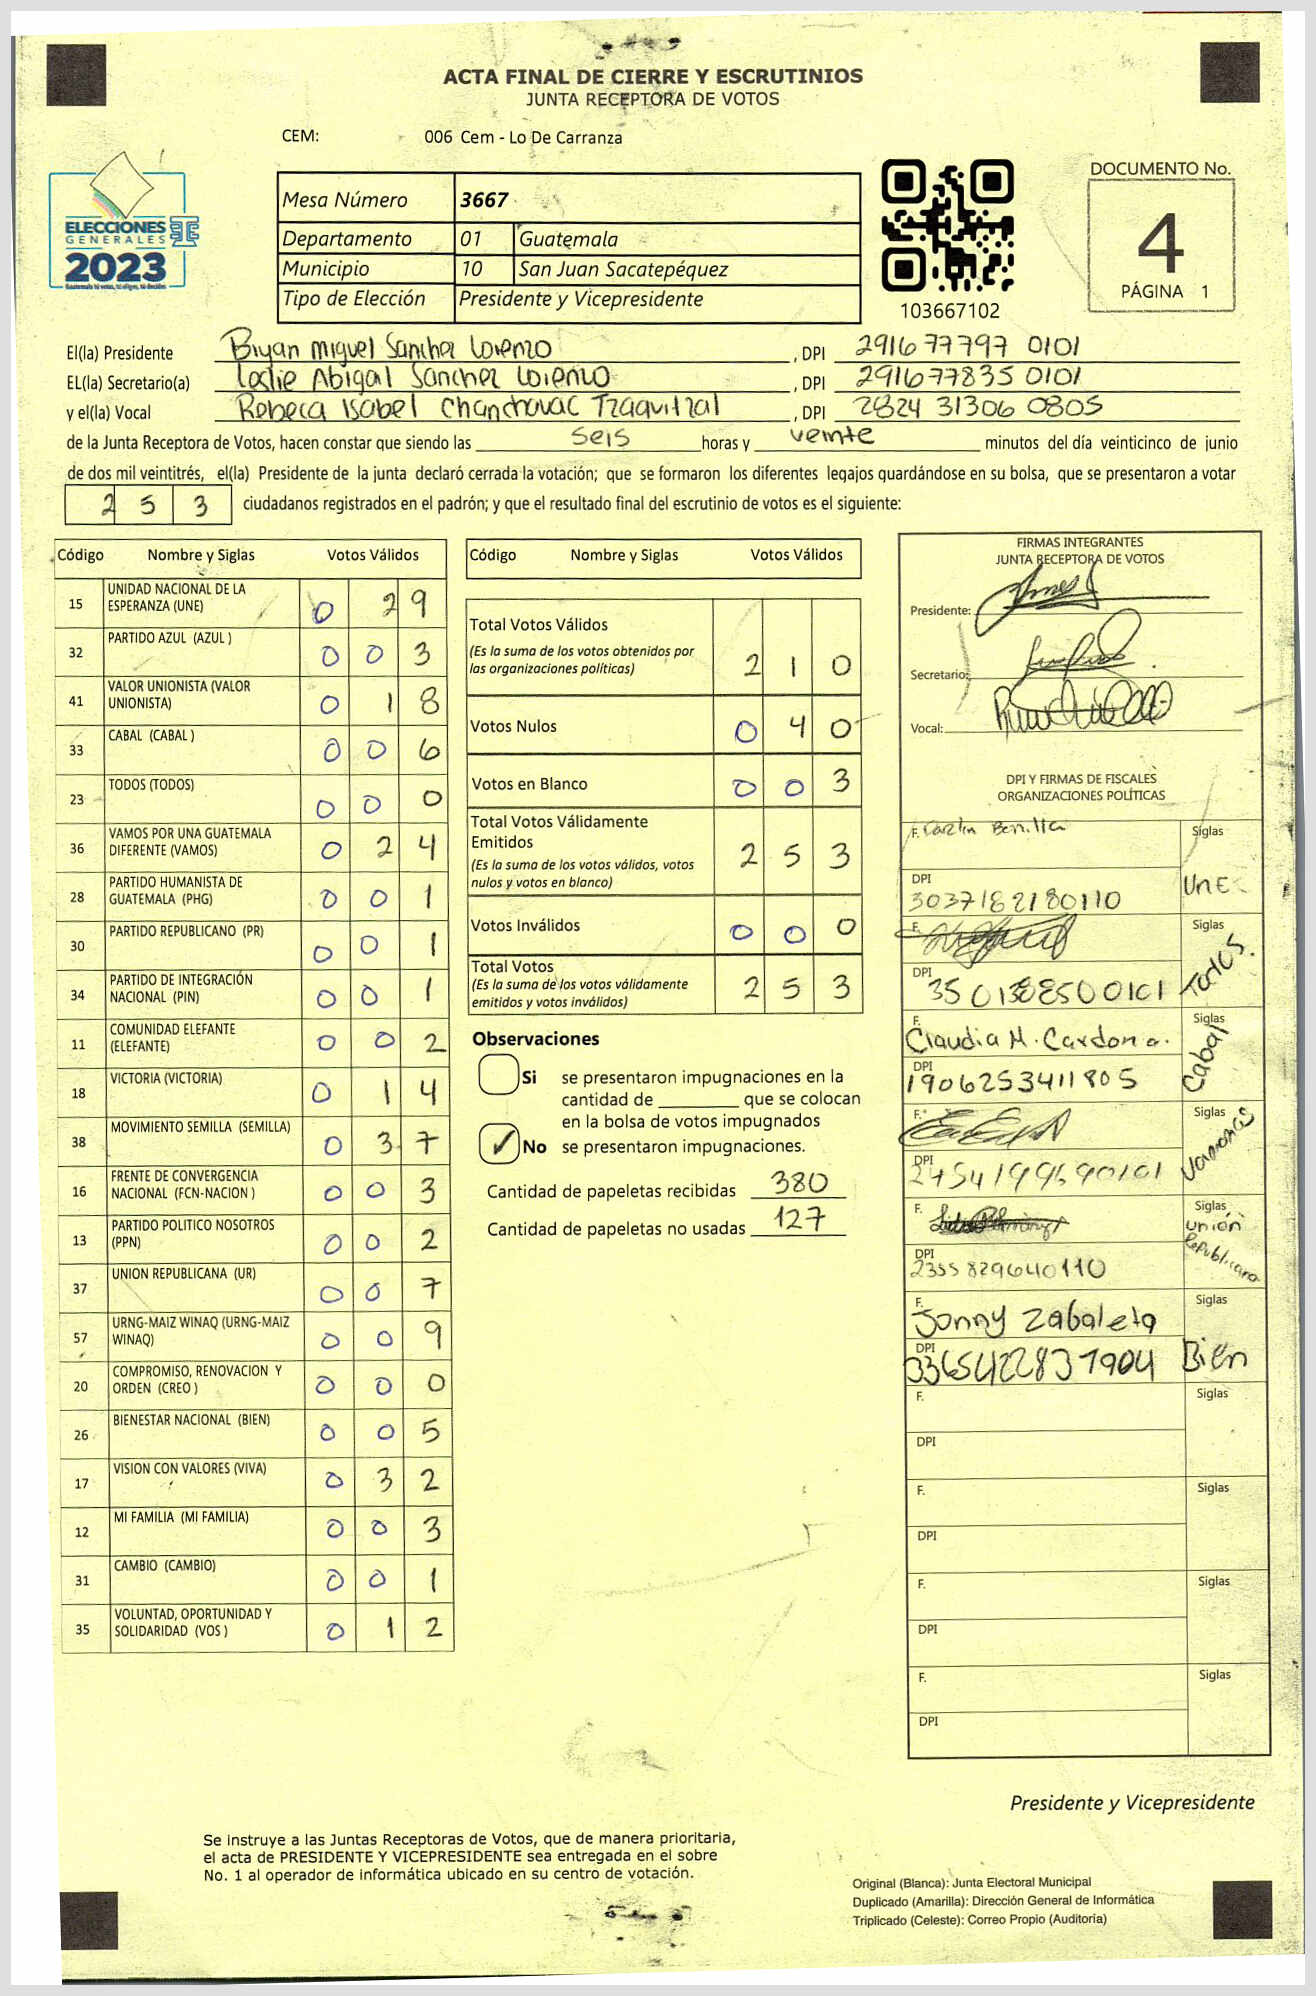 ACTA FINAL DE CIERRE Y ESCRUTINIOS
JUNTA RECEPTORA DE VOTOS
CEM: 006 Cem - Lo De Carranza
ELECCIONES
GENERALES
2023
Mesa Número 3667
Departamento 01 Guatemala
Municipio 10 San Juan Sacatepéquez
Tipo de Elección Presidente y Vicepresidente
103667102
DOCUMENTO No.
4
PÁGINA 1
El(la) Presidente Bryan Miguel Sanchez Lorenzo , DPI 2916 77797 0101
EL(la) Secretario(a) Leslie Abigail Sanchez Lorenzo , DPI 291677835 0101
y el(la) Vocal Rebeca Isabel Chanchavac Tzaquitzal , DPI 2824 31306 0805
de la Junta Receptora de Votos, hacen constar que siendo las seis horas y veinte minutos del día veinticinco de junio
de dos mil veintitrés, el(la) Presidente de la junta declaró cerrada la votación; que se formaron los diferentes legajos guardándose en su bolsa, que se presentaron a votar
2 5 3 ciudadanos registrados en el padrón; y que el resultado final del escrutinio de votos es el siguiente:
Código Nombre y Siglas Votos Válidos
15 UNIDAD NACIONAL DE LA ESPERANZA (UNE) 0 2 9
32 PARTIDO AZUL (AZUL ) 0 0 3
41 VALOR UNIONISTA (VALOR UNIONISTA) 0 1 8
33 CABAL (CABAL ) 0 0 6
23 TODOS (TODOS) 0 0 0
36 VAMOS POR UNA GUATEMALA DIFERENTE (VAMOS) 0 2 4
28 PARTIDO HUMANISTA DE GUATEMALA (PHG) 0 0 1
30 PARTIDO REPUBLICANO (PR) 0 0 1
34 PARTIDO DE INTEGRACIÓN NACIONAL (PIN) 0 0 1
11 COMUNIDAD ELEFANTE (ELEFANTE) 0 0 2
18 VICTORIA (VICTORIA) 0 1 4
38 MOVIMIENTO SEMILLA (SEMILLA) 0 3 7
16 FRENTE DE CONVERGENCIA NACIONAL (FCN-NACION ) 0 0 3
13 PARTIDO POLITICO NOSOTROS (PPN) 0 0 2
37 UNION REPUBLICANA (UR) 0 0 7
57 URNG-MAIZ WINAQ (URNG-MAIZ WINAQ) 0 0 9
20 COMPROMISO, RENOVACION Y ORDEN (CREO ) 0 0 0
26 BIENESTAR NACIONAL (BIEN) 0 0 5
17 VISION CON VALORES (VIVA) 0 3 2
12 MI FAMILIA (MI FAMILIA) 0 0 3
31 CAMBIO (CAMBIO) 0 0 1
35 VOLUNTAD, OPORTUNIDAD Y SOLIDARIDAD (VOS ) 0 1 2
Código Nombre y Siglas Votos Válidos
Total Votos Válidos
(Es la suma de los votos obtenidos por
las organizaciones políticas) 2 1 0
Votos Nulos 0 4 0
Votos en Blanco 0 0 3
Total Votos Válidamente
Emitidos
(Es la suma de los votos válidos, votos
nulos y votos en blanco) 2 5 3
Votos Inválidos 0 0 0
Total Votos
(Es la suma de los votos válidamente
emitidos y votos inválidos) 2 5 3
Observaciones
Si se presentaron impugnaciones en la
cantidad de ________ que se colocan
en la bolsa de votos impugnados
✓ No se presentaron impugnaciones.
Cantidad de papeletas recibidas 380
Cantidad de papeletas no usadas 127
FIRMAS INTEGRANTES
JUNTA RECEPTORA DE VOTOS
Presidente:
Secretario:
Vocal:
DPI Y FIRMAS DE FISCALES
ORGANIZACIONES POLÍTICAS
F. Siglas
DPI 3037182180110 UNE
F. Siglas
DPI Todos.
F. Claudia M. Cardona. Siglas
DPI 1906253411805 Cabal
F. Siglas
DPI
F. Siglas
DPI 2355829640110 Unión Republicana
F. Jonny Zabaleta Siglas
DPI 3365422831904 Bien
F. Siglas
DPI
F. Siglas
DPI
F. Siglas
DPI
F. Siglas
DPI
Presidente y Vicepresidente
Se instruye a las Juntas Receptoras de Votos, que de manera prioritaria,
el acta de PRESIDENTE Y VICEPRESIDENTE sea entregada en el sobre
No. 1 al operador de informática ubicado en su centro de votación.
Original (Blanca): Junta Electoral Municipal
Duplicado (Amarilla): Dirección General de Informática
Triplicado (Celeste): Correo Propio (Auditoría)